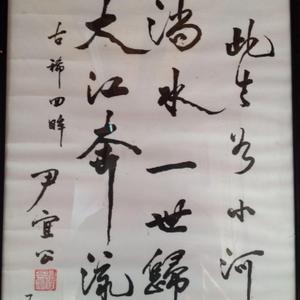 此生若小河
淌水一世歸
大江奔流
古稀四
尹宜公